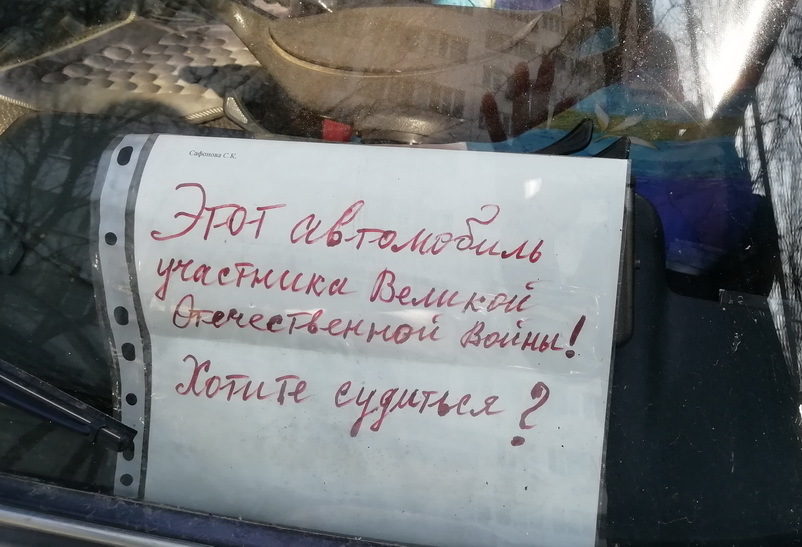 Сафонова С.К.
Этот автомобиль
участника Великой
Отечественной Войны!
Хотите судиться?